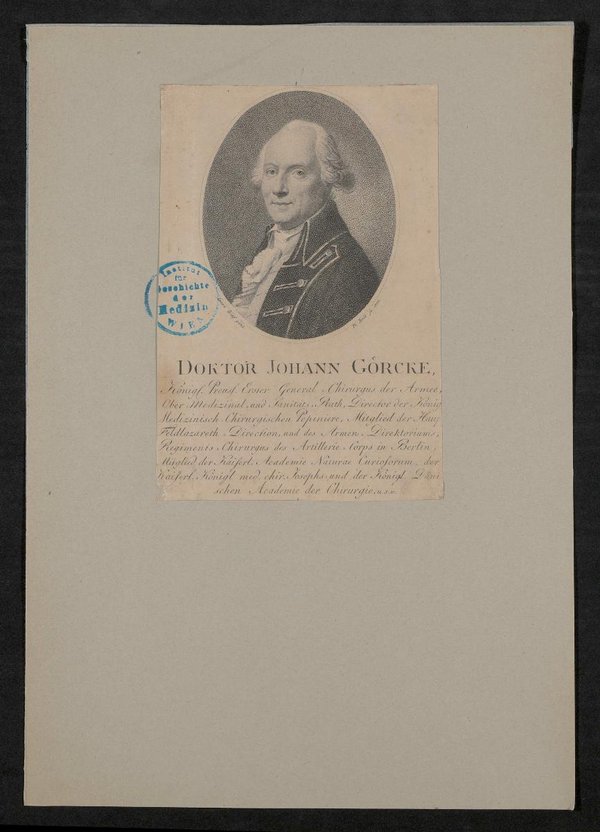 Institut
für
Geschichte
der
Medizin
WIEN
DOKTOR JOHANN GÖRCKE,
Königl. Preuß. Erster General-Chirurgus der Armee,
Ober-Medizinal, und Sanitäts-Rath, Director der König
Medizinisch-Chirurgischen Pepiniere, Mitglied der Haup
Feldlazareth-Direction, und des Armen-Direktoriums,
Regiments-Chirurgus des Artillerie-Corps in Berlin,
Mitglied der Kaiserl. Academie Naturae Curiosorum, der
Kaiserl. Königl. med. chir. Josephs- und der Königl. Däni
schen Academie der Chirurgie, u.s.w.